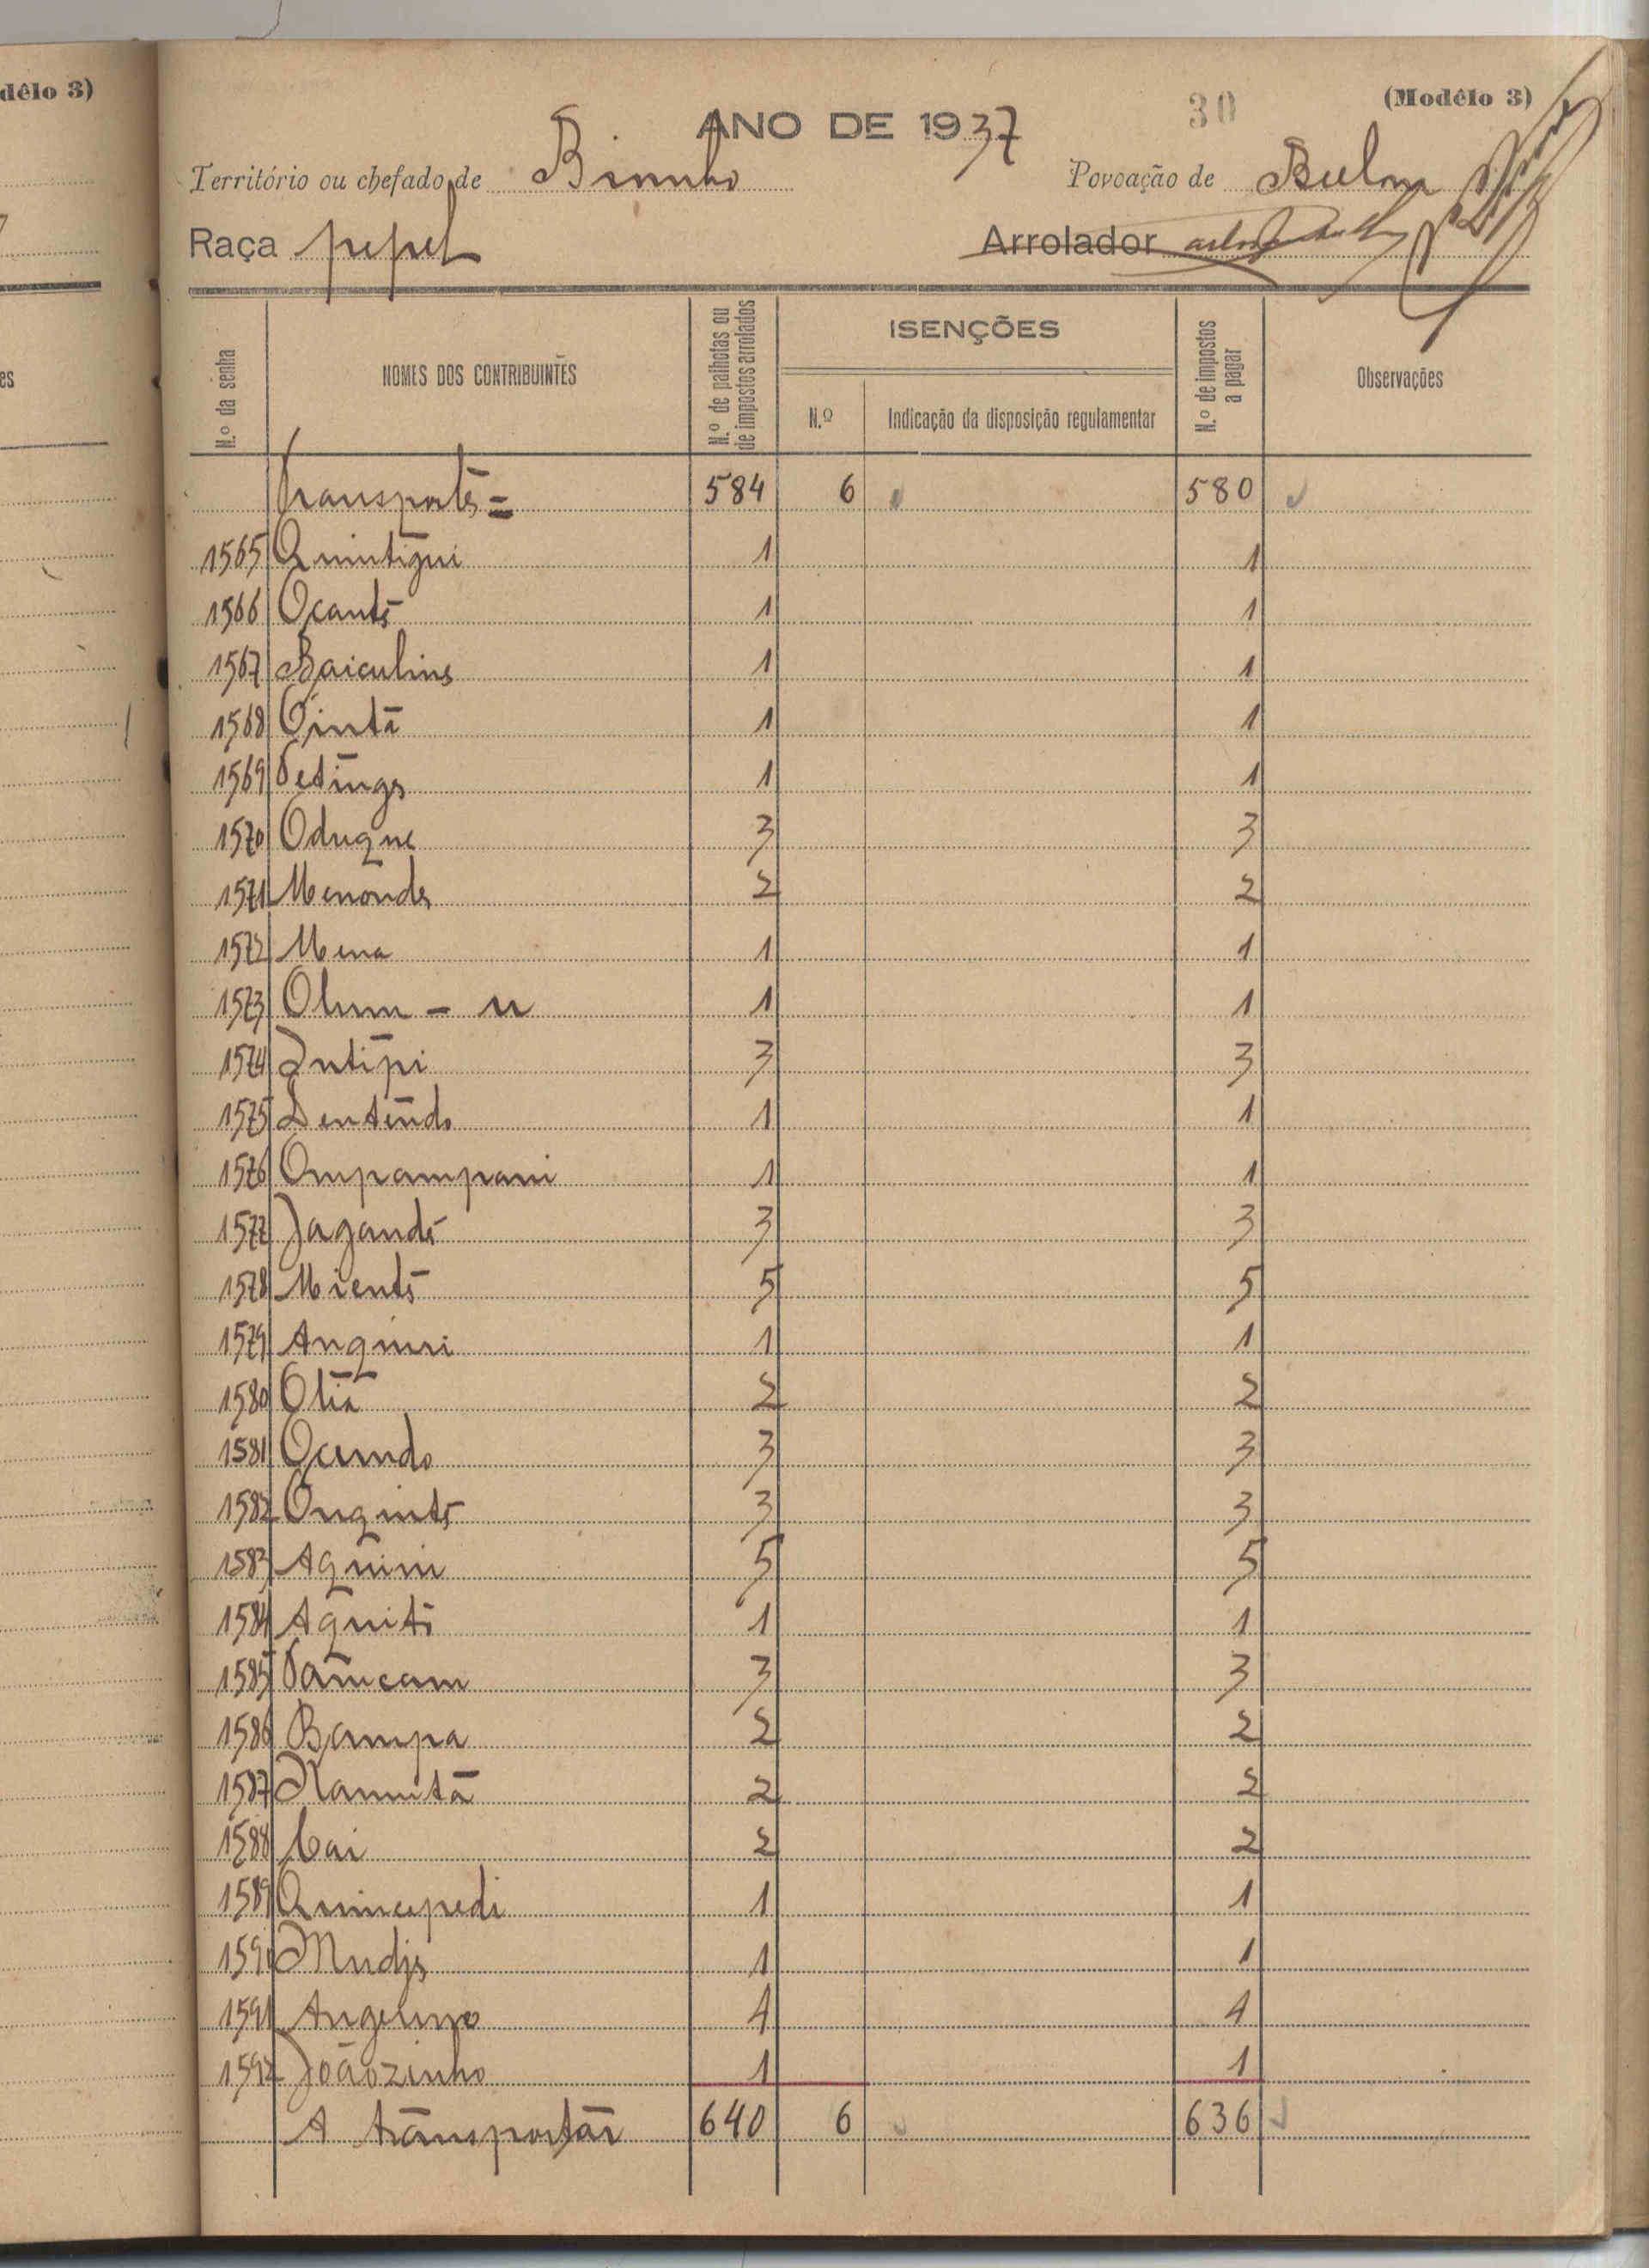 dêlo 3)
es
30
(Modêlo 3)
ANO DE 1937
Território ou chefado de Bimnho Povoação de
Raça pepel Arrolador
N.º da senha
NOMES DOS CONTRIBUINTES
N.º de palhotas ou de impostos arrolados
ISENÇÕES
N.º
Indicação da disposição regulamentar
N.º de impostos a pagar
Observações
Transporte = 584 6 580
1565 Quintigui 1 1
1566 Ocantê 1 1
1567 Baiculins 1 1
1568 Cintã 1 1
1569 1 1
1570 Oduque 3 3
1571 Menonde 2 2
1572 Mena 1 1
1573 Olum - u 1 1
1574 Intipi 3 3
1575 Dentendo 1 1
1576 Ompampani 1 1
1577 Jagandê 3 3
1578 Mientê 5 5
1579 Anquiri 1 1
1580 Otiã 2 2
1581 Ocundo 3 3
1582 Onquintê 3 3
1583 Aquini 5 5
1584 Aquitê 1 1
1585 3 3
1586 Bampa 2 2
1587 2 2
1588 Cai 2 2
1589 Quincupedi 1 1
1590 1 1
1591 Angelino 4 4
1592 Joãozinho 1 1
A transportar 640 6 636